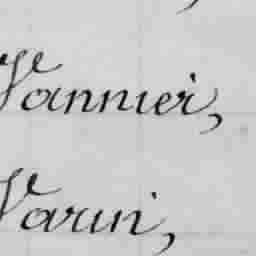 Vannier,
Varin,